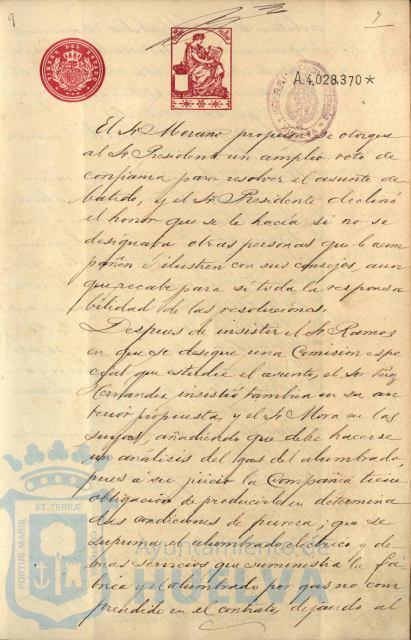 9
7
TIMBRE DEL ESTADO
A.4,028,370*
El Sr Morano propuso se otorgue
al Sr Presidente un amplio voto de
confianza para resolver el asunto de-
batido, y el Sr Presidente declinó
el honor que se le hacía si no se
designaba otras personas que le acom-
pañen é ilustren con sus consejos, aun
que recabe para si toda la responsa
bilidad de las resoluciones.
Despues de insistir el Sr Ramos
en que se designe una Comision espe
cial que estudie el asunto, el Sr
Hernandez insistió tambien en su an
terior propuesta, y el Sr Mora en las
suyas, añadiendo que debe hacerse
un análisis del gas del alumbrado,
pues á su juicio la Compañia tiene
obligacion de producirlo en determina
das condiciones de pureza; que se
suprima el alumbrado eléctrico y de
mas servicios que suministra la Fá
brica y el alumbrado por gas no com
prendido en el contrato, dejando al
PORTUS MARIS ET TERRÆ
Ayuntamiento de
HUELVA